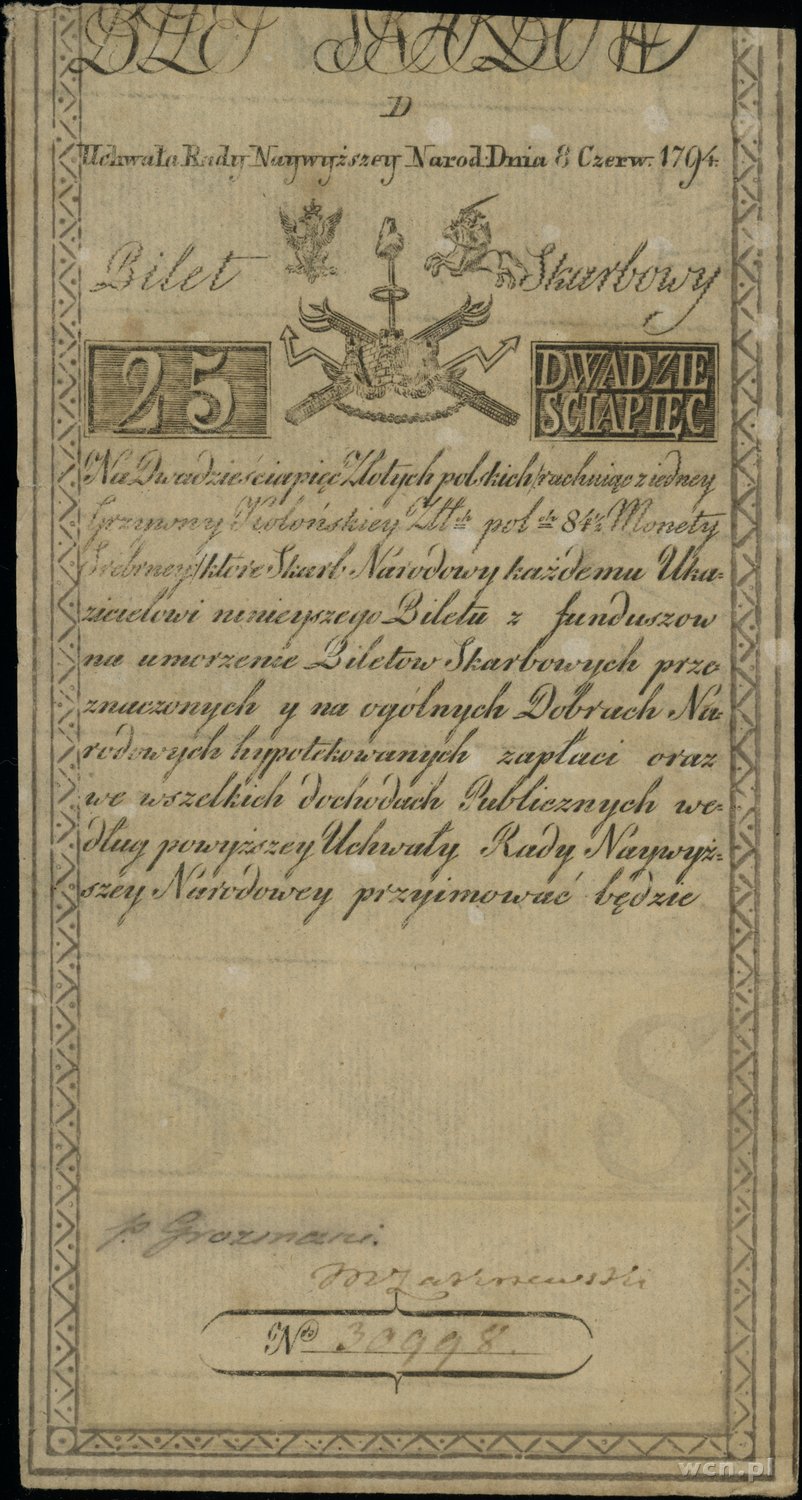 BILET SKARBOWY
D
Uchwała Rady Naywyższey Narod: Dnia 8 Czerw. 1794.
Bilet Skarbowy
25 DWADZIE
ŚCIAPIĘC
Na Dwadzieściapięć Złotych polskich /rachuiąc z iedney
Grzywny Kolońskiey Złt:ch pol:ch 84½ Monety
Srebrney/ które Skarb Narodowy każdemu Uka=
zicielowi ninieyszego Biletu z funduszow
na umorzenie Biletow Skarbowych prze
znaczonych y na ogólnych Dobrach Na=
rodowych hypotekowanych zapłaci oraz
we wszelkich dochodach Publicznych we=
dług powyższey Uchwały Rady Naywyż=
szey Narodowey przyimować będzie
B S
p. Grozmani.
MZakrzewski
No 30998.
wcn.pl